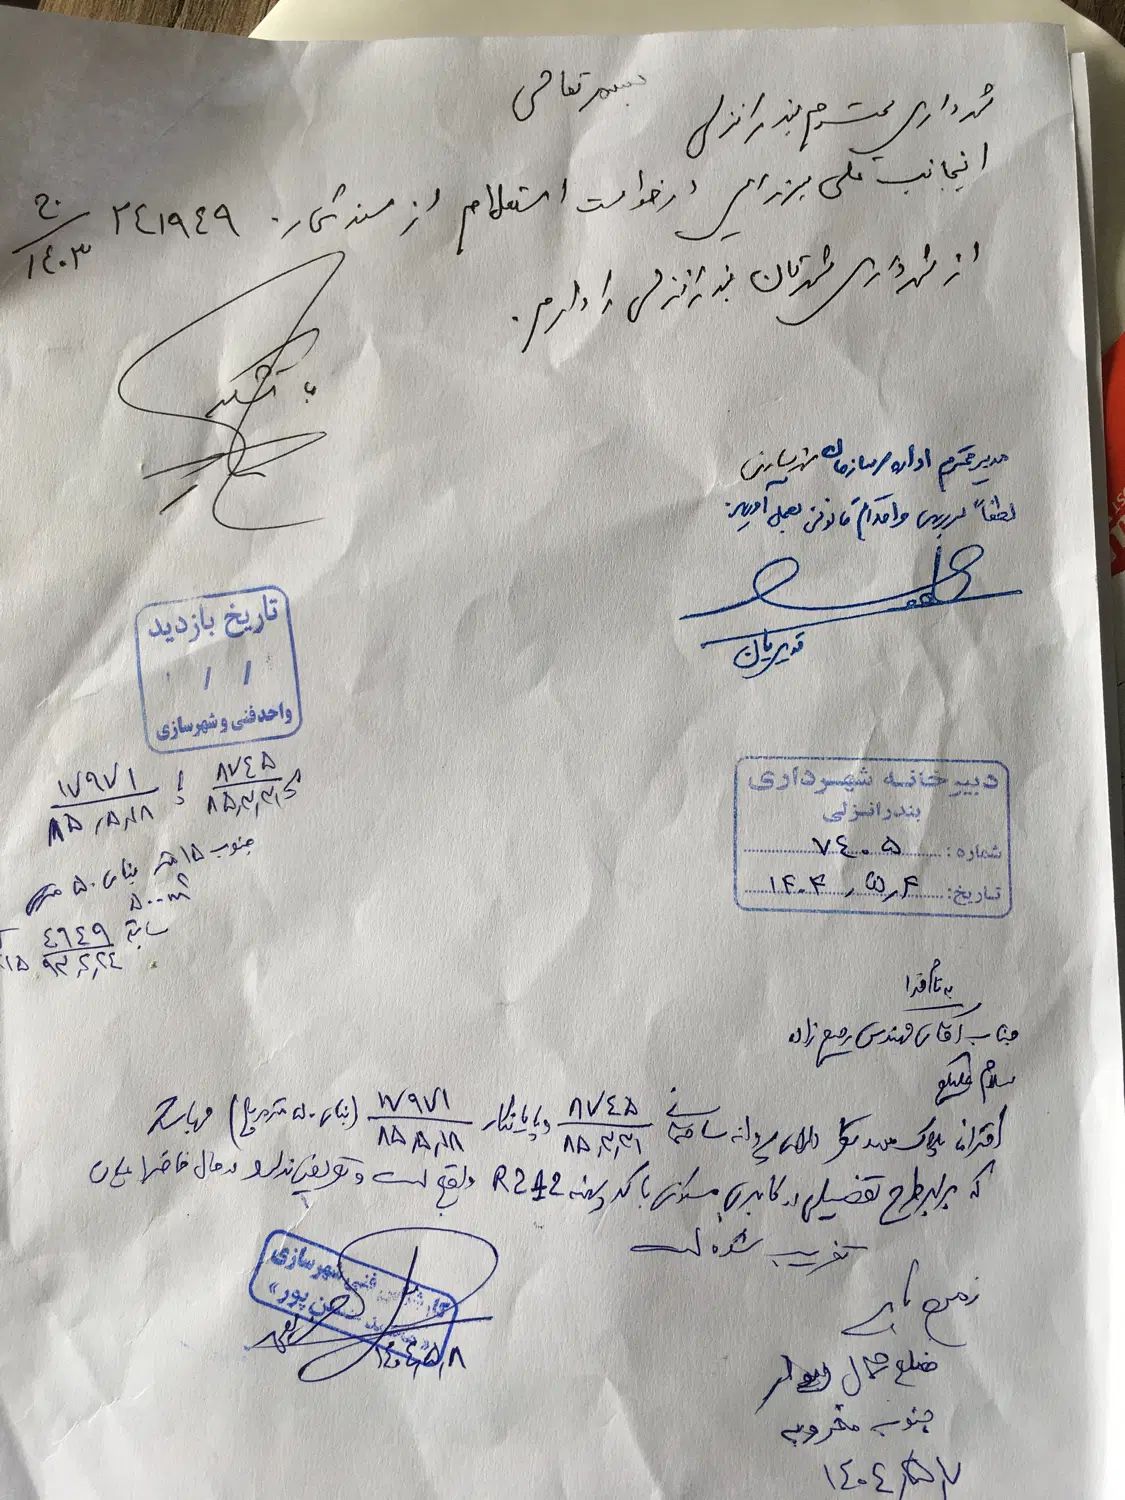 بسمه تعالی
شهرداری محترم بندر انزلی
اینجانب علی برزرای درخواست استعلام از سند شماره ۲۴۱۹۴۹ ج/۱۴۰۳
از شهرداری شهرستان بندر انزلی را دارم.
با تشکر
مدیر محترم اداره سازمان شهرسازی
لطفاً بررسی و اقدام قانونی بعمل آورید
قدیریان
تاریخ بازدید
/ /
واحد فنی و شهرسازی
۸۷۴۵
۸۵,۳,۳۱
۱۷۹۷۱
۸۵,۵,۱۸
جنوب ۱۵ متر بنای ۵۰ متر
۵۰۰m²
سابقه ۴۶۴۹
۹۳,۲,۲۴
دبیرخانه شهرداری
بندرانزلی
شماره: ۷۴۰۵
تاریخ: ۱۴۰۴,۵,۴
جناب آقای مهندس رفیع زاده
سلام علیکم
احتراماً پلاک مورد دارای پروانه ساختمانی ۸۷۴۵/۸۵,۳,۳۱ و پایانکار ۱۷۹۷۱/۸۵,۵,۱۸ (بنای ۵۰ مترمربع) میباشد
که برابر طرح تفضیلی در کاربری مسکونی با کد پهنه R212 واقع است و تعریض ندارد و در حال حاضر بنای
تخریب شده است
کارشناس فنی شهرسازی
۱۴۰۴,۵,۸
زمین بایر
ضلع شمال دیوار
جنوب مخروبه
۱۴۰۴/۵/۷